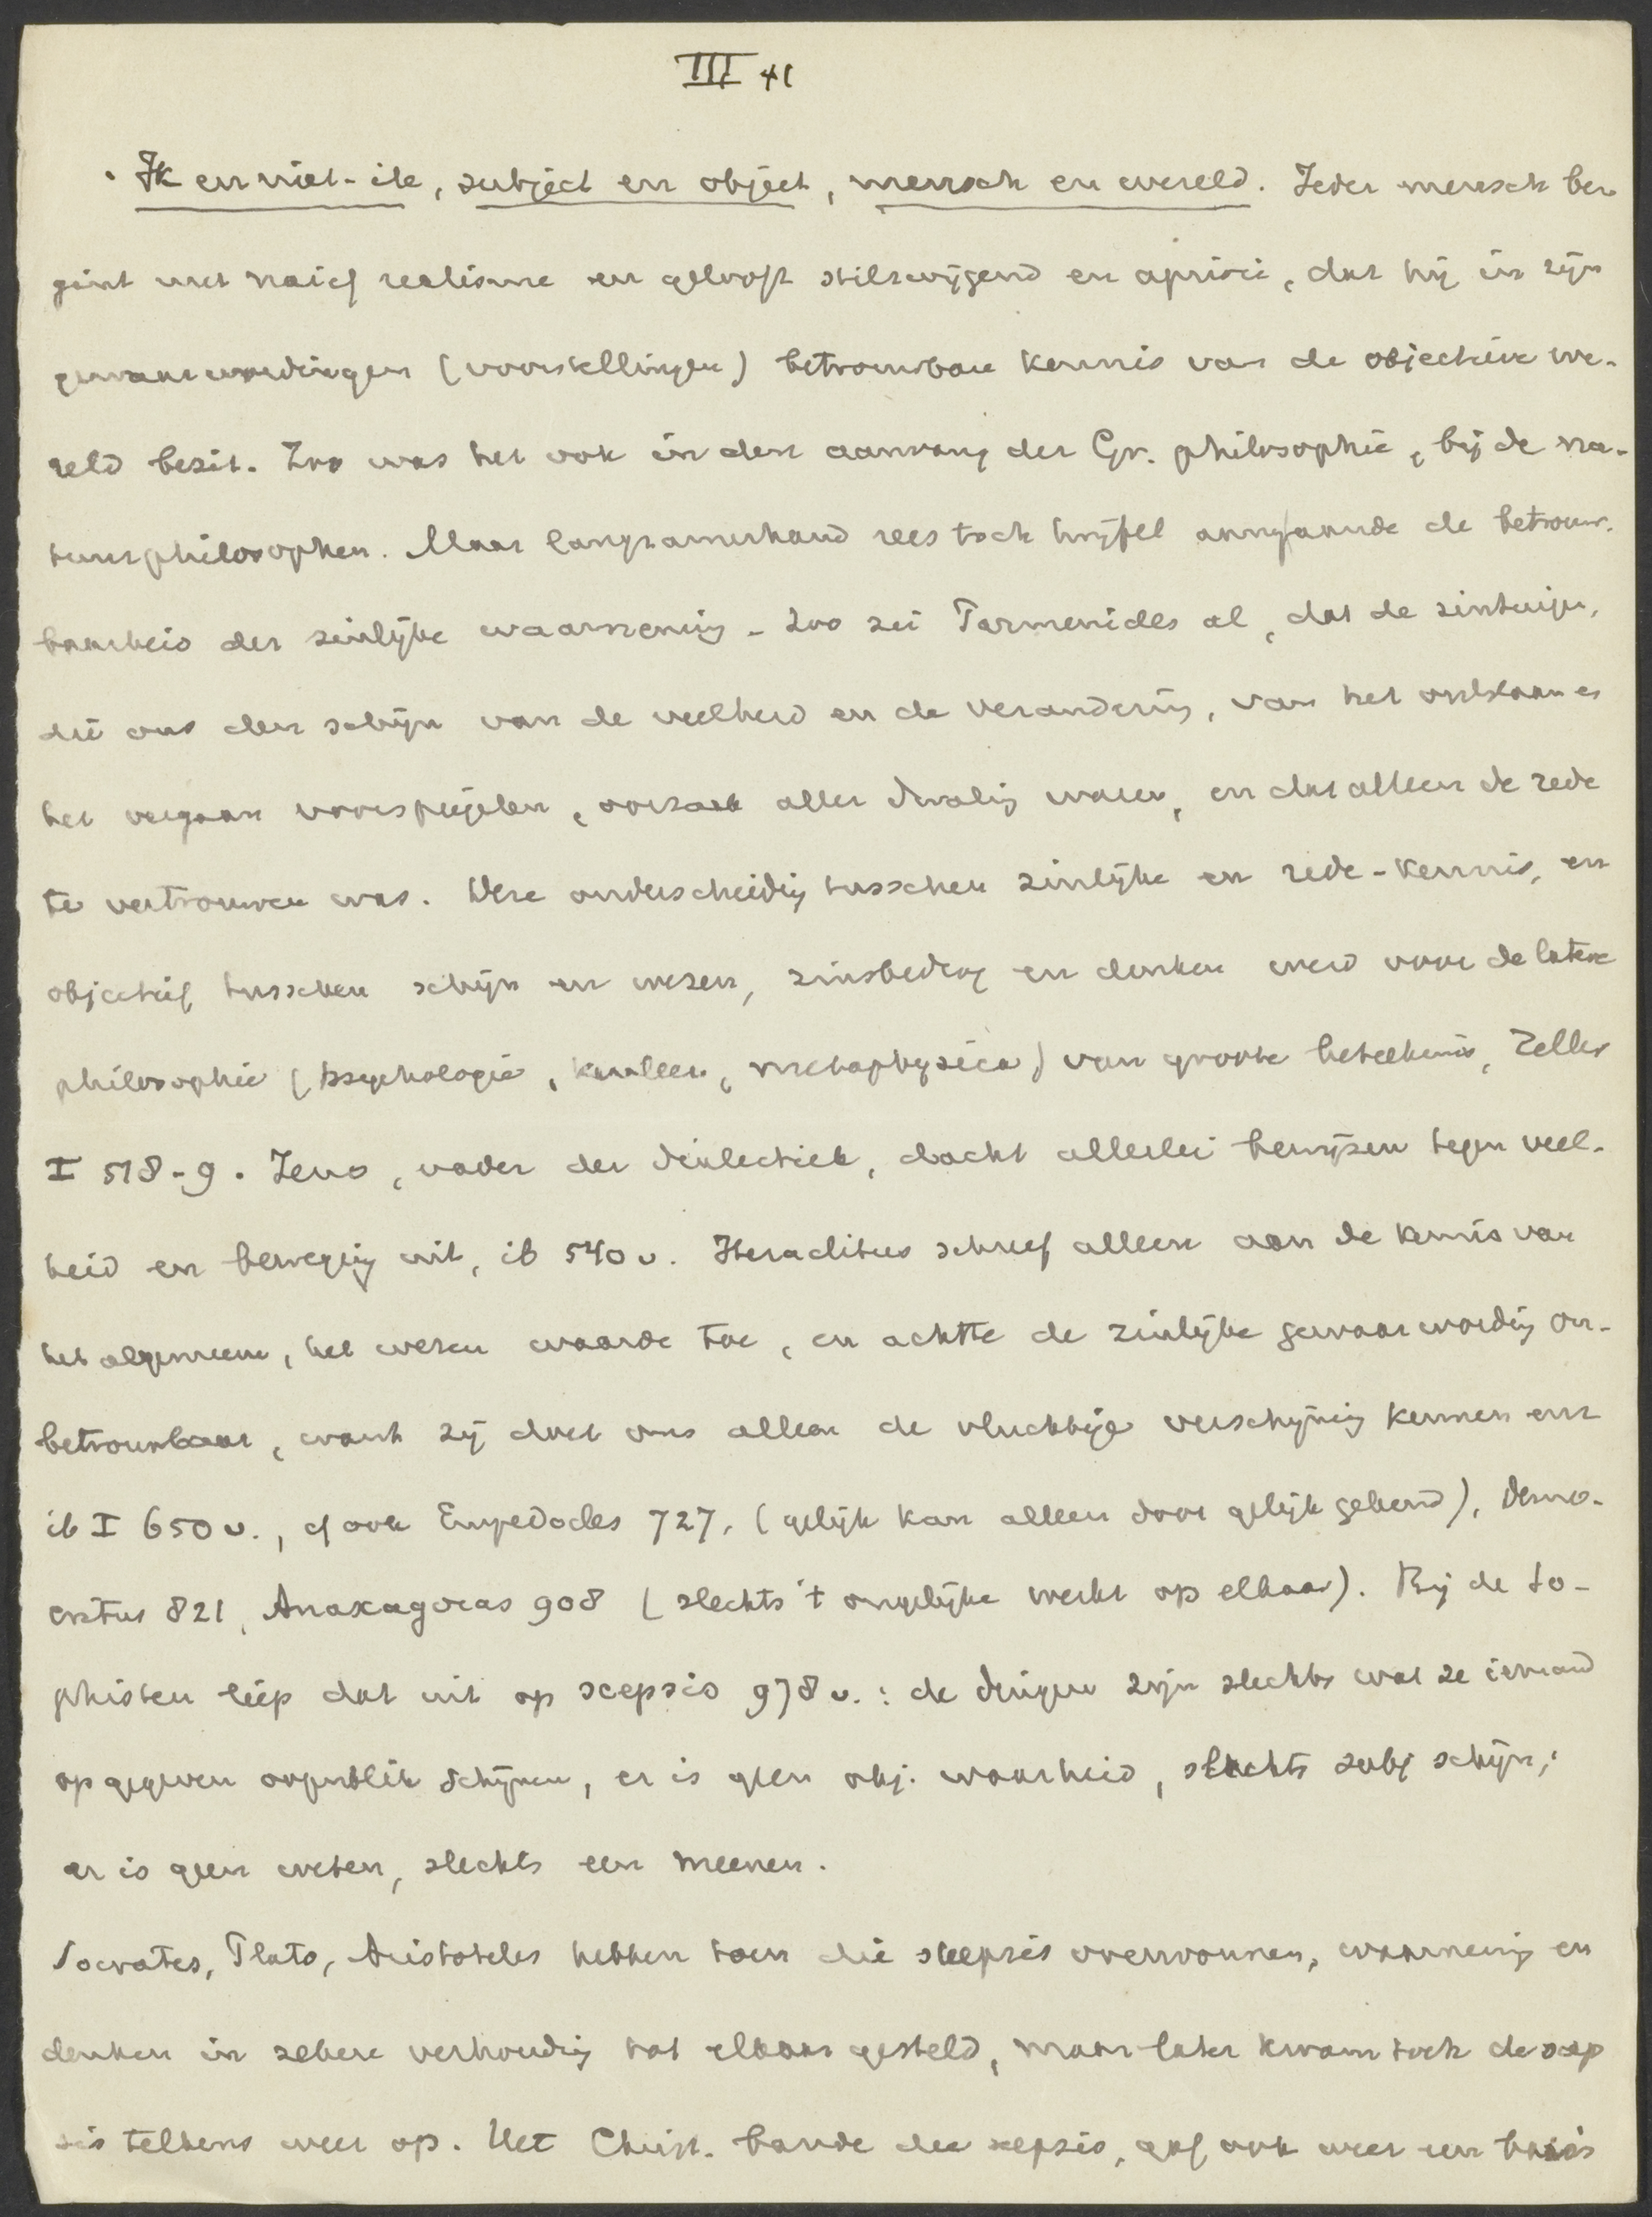 III 41
Ik en niet-ik, subject en object, mensch en wereld. Ieder mensch be-
gint met naief realisme en gelooft stilzwijgend en apriori, dat hij in zijn
gewaarwordingen (voorstellingen) betrouwbare kennis van de objectieve we-
reld bezit. Zoo was het ook in den aanvang der Gr. philosophie, bij de na-
tuurphilosophen. Maar langzamerhand rees toch twijfel aangaande de betrouw-
baarheid der zinlijke waarneming - zoo zei Parmenides al, dat de zintuigen,
die ons den schijn van de veelheid en de verandering, van het ontstaan en
het vergaan voorspiegelen, oorzaak aller dwaling waren, en dat alleen de rede
te vertrouwen was. Deze onderscheiding tusschen zinlijke en rede-kennis, en
objectief tusschen schijn en wezen, zinsbedrog en denken werd voor de latere
philosophie (psychologie, kenleer, metaphysica) van groote beteekenis, Zeller
I 518-9. Zeno, vader der dialectiek, dacht allerlei bewijzen tegen veel-
heid en beweging uit, ib 540 v. Heraclitus schreef alleen aan de kennis van
het algemeene, het wezen waarde toe, en achtte de zinlijke gewaarwording on-
betrouwbaar, want zij doet ons alleen de vluchtige verschijning kennen enz
ib I 650 v., cf ook Empedocles 727, (gelijk kan alleen door gelijk gekend), Demo-
critus 821, Anaxagoras 908 (slechts 't ongelijke werkt op elkaar). Bij de So-
phisten liep dat uit op scepsis 978 v.: de dingen zijn slechts wat ze iemand
op gegeven oogenblik schijnen, er is geen obj. waarheid, slechts subj schijn;
er is geen weten, slechts een meenen.
Socrates, Plato, Aristoteles hebben toen die scepsis overwonnen, waarneming en
denken in zekere verhouding tot elkaar gesteld, maar later kwam toch de scep
sis telkens weer op. Het Christ. bande die scepsis, gaf ook weer een basis